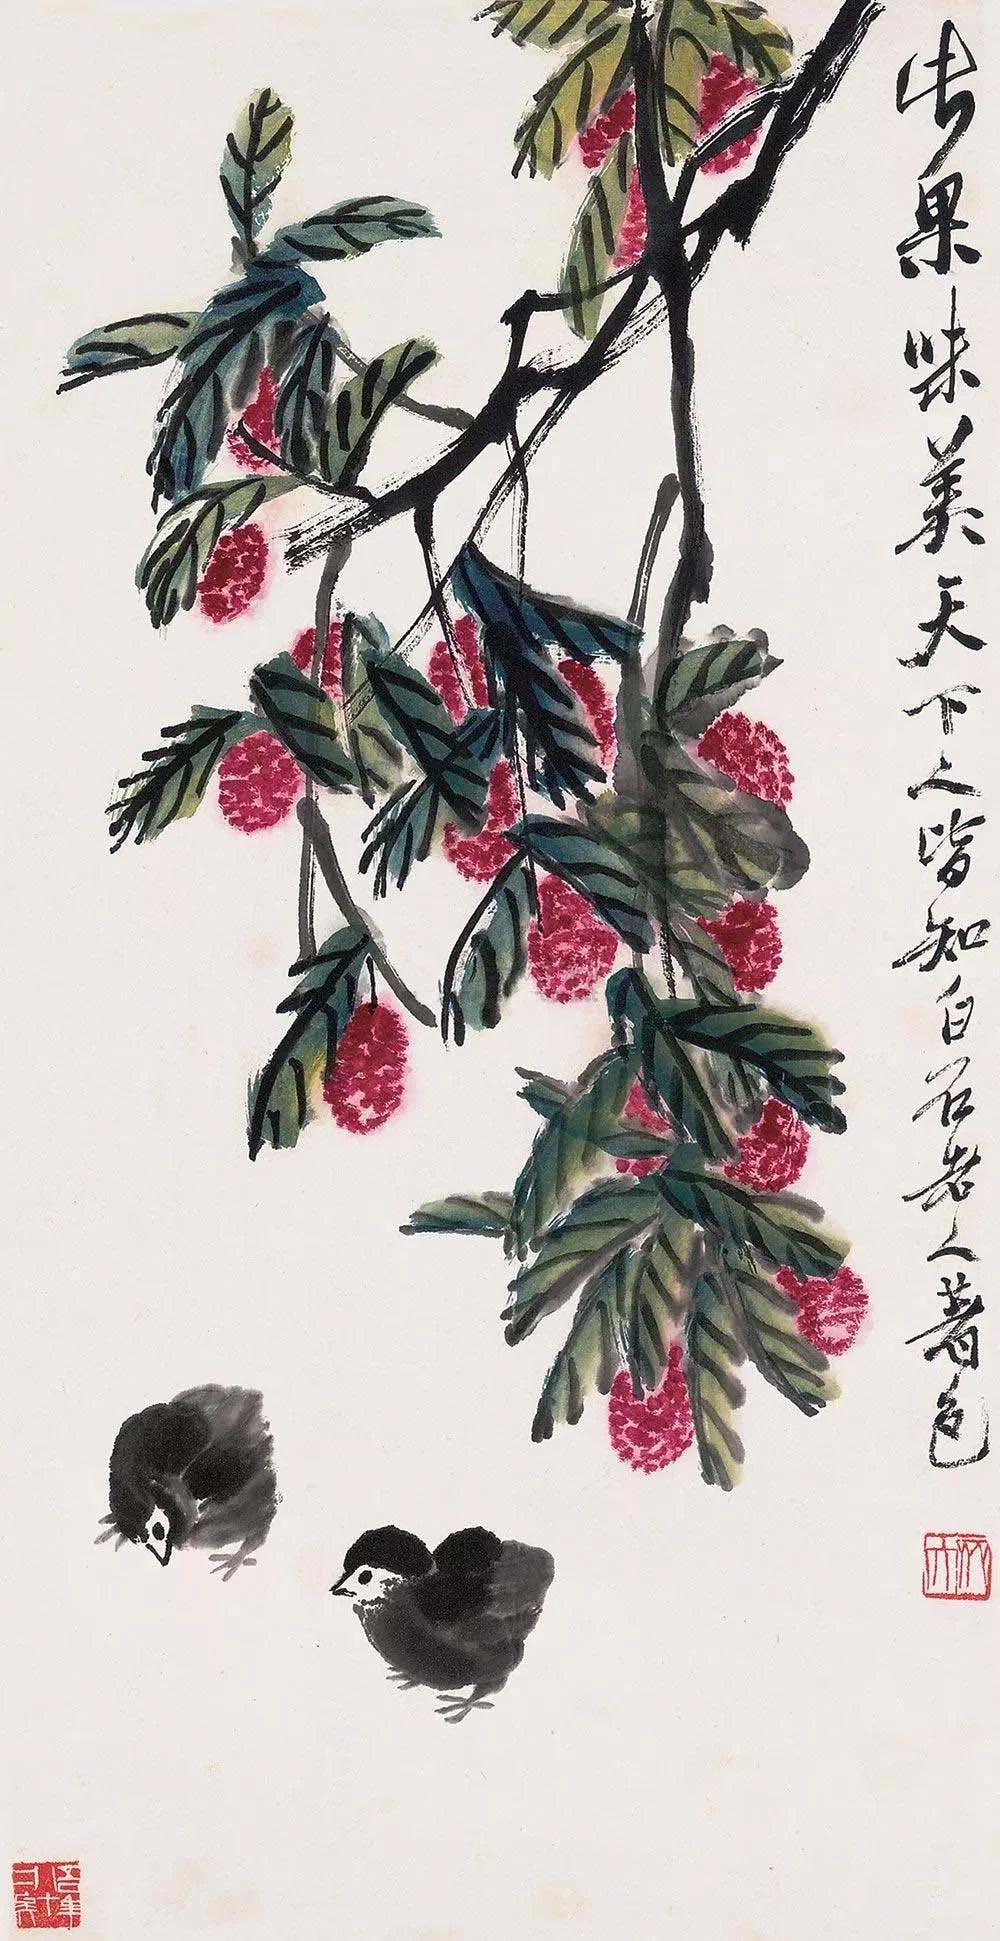 此果味美天下人皆知白石老人著色